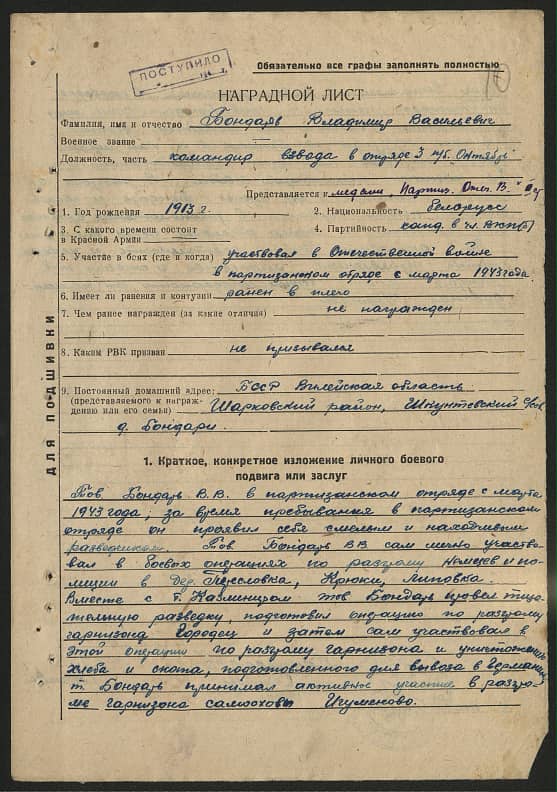 ПОСТУПИЛО
Обязательно все графы заполнять полностью
НАГРАДНОЙ ЛИСТ
Фамилия, имя и отчество Бондарь Владимир Васильевич
Военное звание
Должность, часть командир взвода в отряде 3 п/б. Октябрь
Представляется к медали „Партиз. Отеч. В."
1. Год рождения 1913 г. 2. Национальность белорусс
3. С какого времени состоит в Красной Армии 4. Партийность канд. в чл. ВКП(б)
5. Участие в боях (где и когда) участвовал в Отечественной войне
в партизанском отряде с марта 1943 года.
6. Имеет ли ранения и контузии ранен в плечо
7. Чем ранее награжден (за какие отличия) не награжден
8. Каким РВК призван не призывался
9. Постоянный домашний адрес: БССР Вилейская область
(представляемого к награж-
дению или его семьи) Шарковский район, Шкунтевский с/сов
д. Бондари.
ДЛЯ ПОДШИВКИ
1. Краткое, конкретное изложение личного боевого
подвига или заслуг
Тов. Бондарь В.В. в партизанском отряде с марта
1943 года; за время пребывания в партизанском
отряде он проявил себя смелым и находчивым
разведчиком. Тов. Бондарь В.В. сам лично участво-
вал в боевых операциях по разгрому немцев и по-
лиции в дер. Крюки, Липовка.
Вместе с т. тов Бондарь провел тща-
тельную разведку, подготовил операцию по разгрому
гарнизона Городец и затем сам участвовал в
этой операции по разгрому гарнизона и уничтожении
хлеба и скота, подготовленного для вывоза в Германию
т. Бондарь принимал активное участие в разгро-
ме гарнизона самооховы Игуменово.